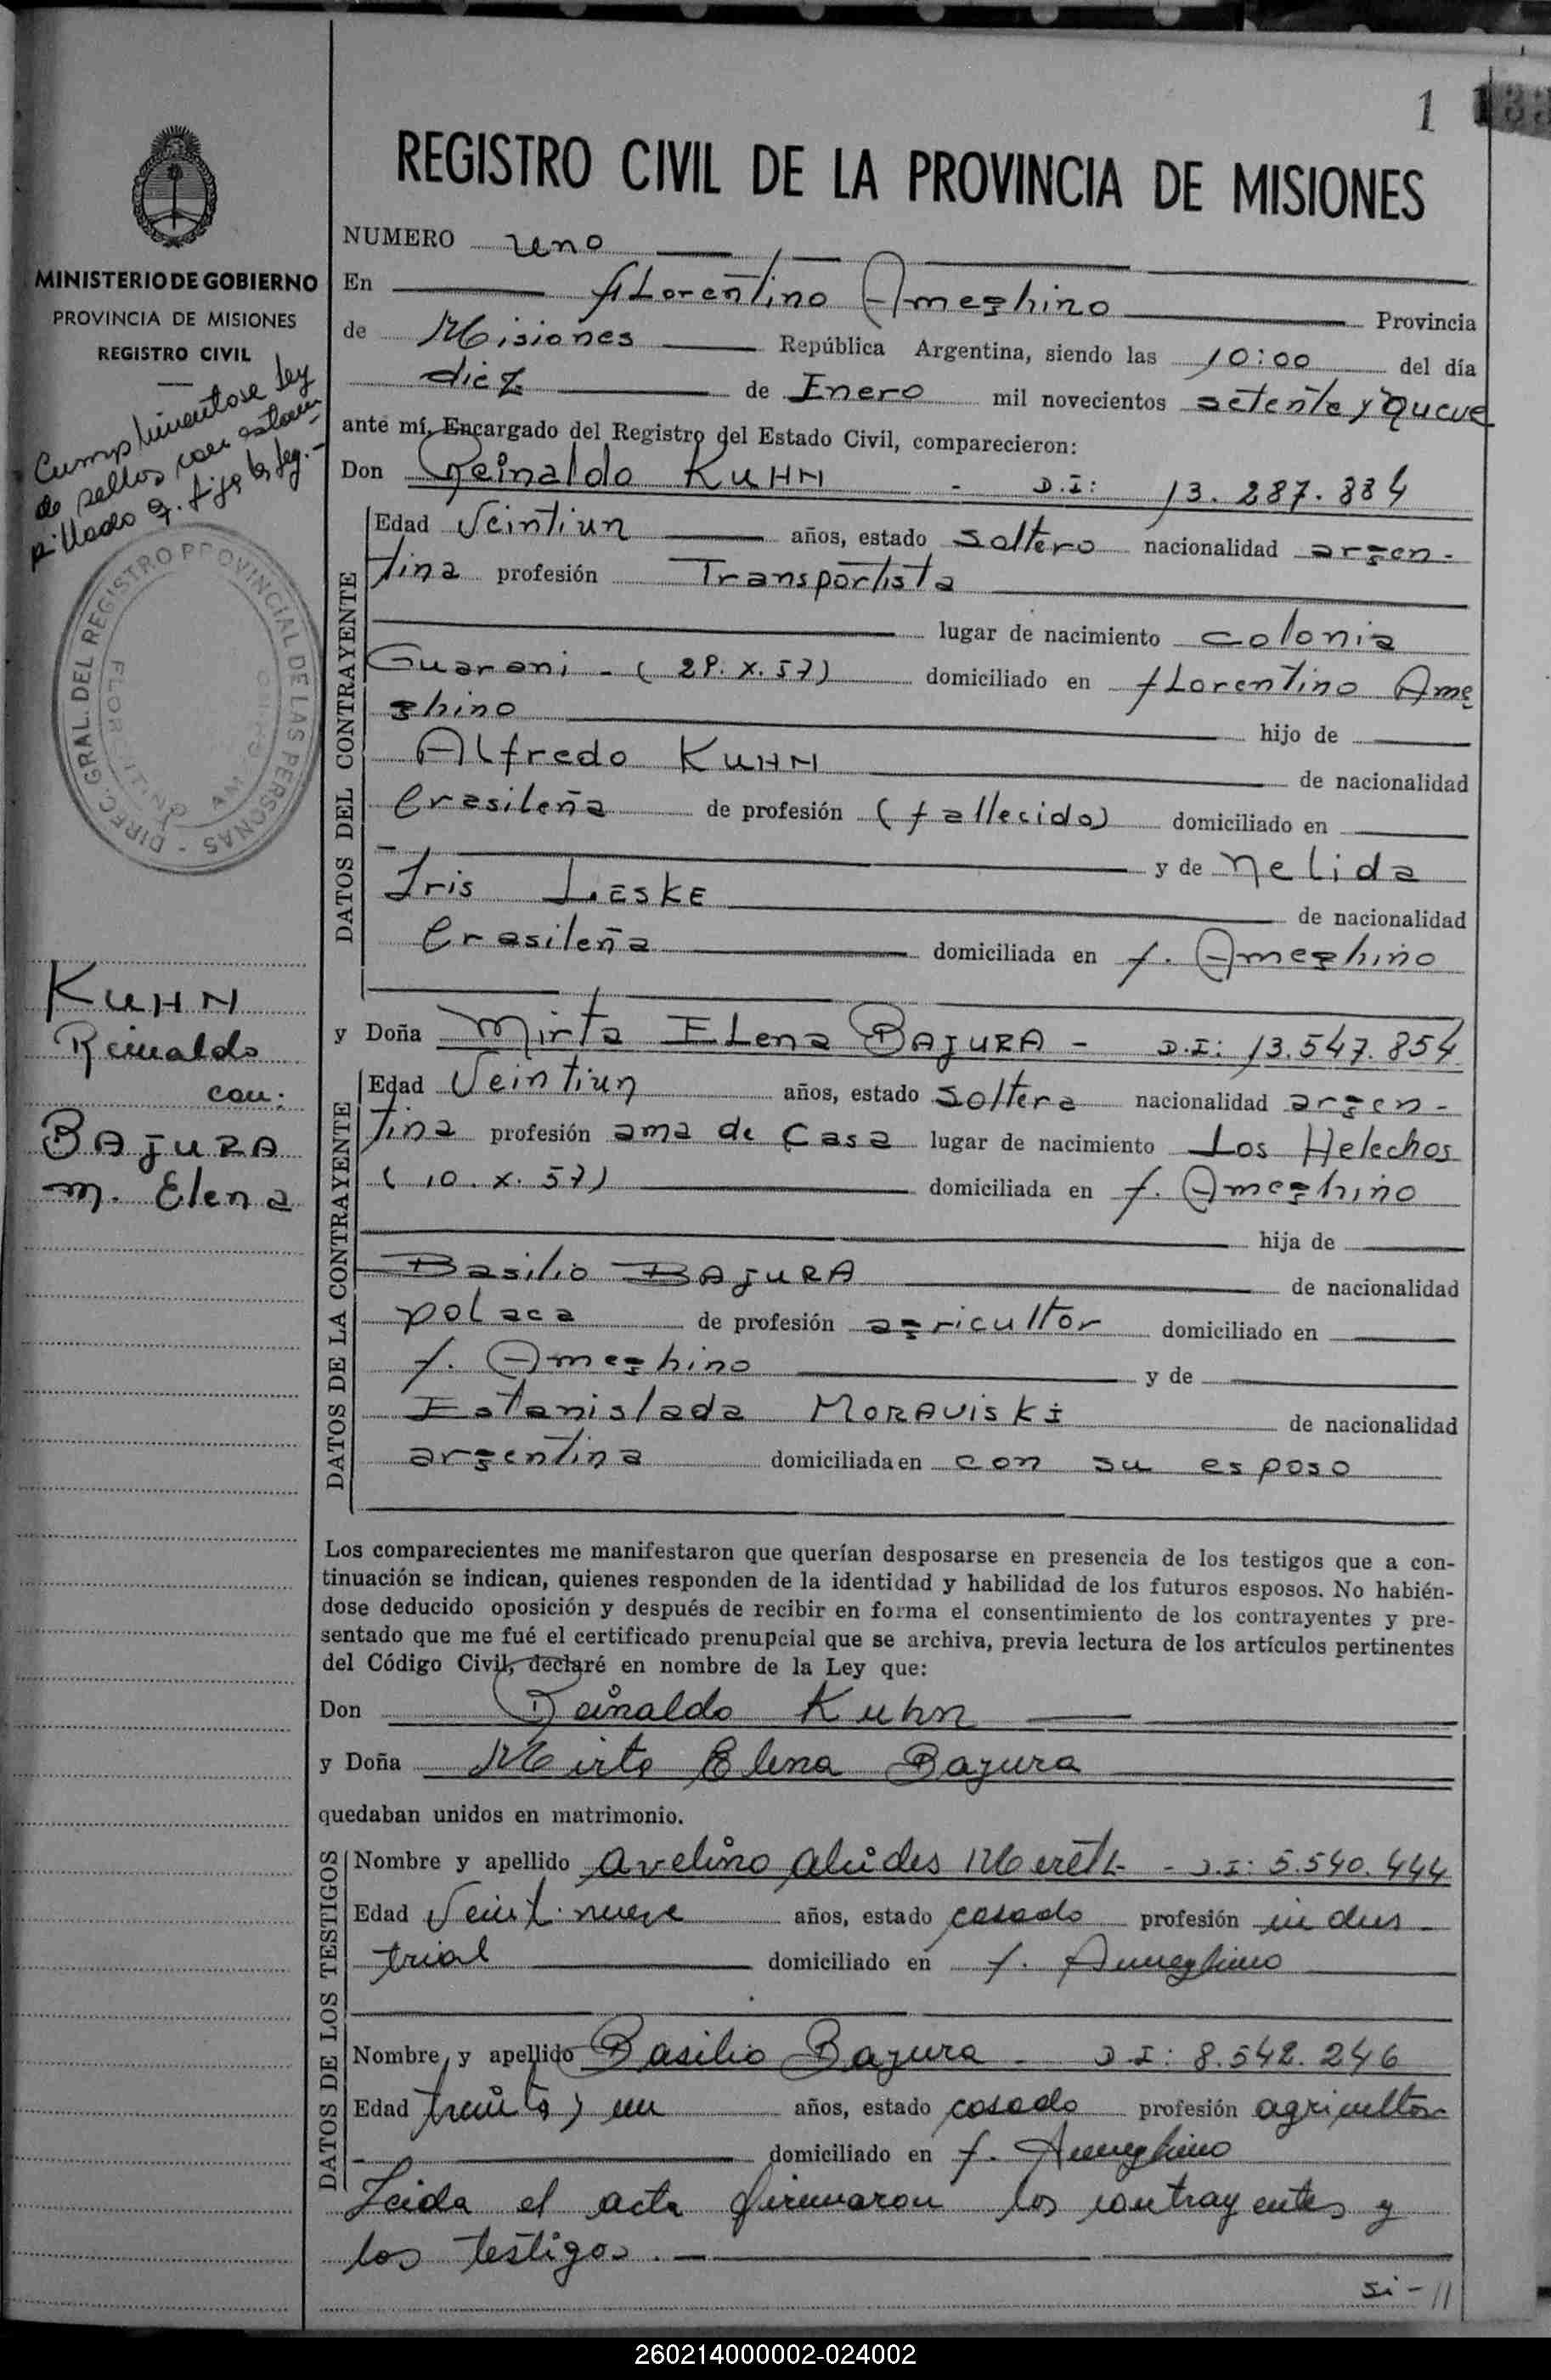 1
REGISTRO CIVIL DE LA PROVINCIA DE MISIONES
NUMERO uno
En fLorentino Ameghino Provincia
de Misiones República Argentina, siendo las 10:00 del día
diez de Enero mil novecientos setenta y nueve
ante mí, Encargado del Registro del Estado Civil, comparecieron:
Don Reinaldo KUHN - D.I: 13.287.884
Edad Veintiun años, estado soltero nacionalidad argen-
tina profesión Transportista
lugar de nacimiento colonia
Guarani - ( 29. X. 57) domiciliado en fLorentino Ame
ghino hijo de
Alfredo KUHN de nacionalidad
brasileña de profesión (fallecido) domiciliado en
y de Nelida
Iris LESKE de nacionalidad
brasileña domiciliada en f. Ameghino
y Doña Mirta ELena BAJURA - D.I: 13.547.854
Edad Veintiun años, estado soltera nacionalidad argen-
tina profesión ama de casa lugar de nacimiento Los Helechos
( 10. X. 57) domiciliada en f. Ameghino
hija de
Basilio BAJURA de nacionalidad
polaca de profesión agricultor domiciliado en
f. Ameghino y de
Estanislada MORAVISKI de nacionalidad
argentina domiciliada en con su esposo
Los comparecientes me manifestaron que querían desposarse en presencia de los testigos que a con-
tinuación se indican, quienes responden de la identidad y habilidad de los futuros esposos. No habién-
dose deducido oposición y después de recibir en forma el consentimiento de los contrayentes y pre-
sentado que me fué el certificado prenupcial que se archiva, previa lectura de los artículos pertinentes
del Código Civil, declaré en nombre de la Ley que:
Don Reinaldo Kuhn
y Doña Mirta Elena Bajura
quedaban unidos en matrimonio.
Nombre y apellido Avelino Alcides Mereth - D.I: 5.540.444
Edad Veintinueve años, estado casado profesión indus-
trial domiciliado en f. Ameghino
Nombre y apellido Basilio Bajura - D.I: 8.542.246
Edad treinta y un años, estado casado profesión agricultor
domiciliado en f. Ameghino
Leida el acta firmaron los contrayentes y
los testigos.
si-//
DATOS DEL CONTRAYENTE
DATOS DE LA CONTRAYENTE
DATOS DE LOS TESTIGOS
MINISTERIO DE GOBIERNO
PROVINCIA DE MISIONES
REGISTRO CIVIL
Cumplimentose ley
de sellos con estam
pillado q. fija la ley.-
DIREC. GRAL. DEL REGISTRO PROVINCIAL DE LAS PERSONAS
KUHN
Reinaldo
con:
BAJURA
M. Elena
260214000002-024002